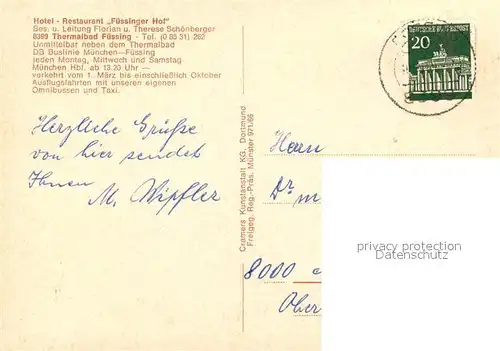 Hotel - Restaurant „Füssinger Hof"
Bes. u. Leitung Florian u. Therese Schönberger
8399 Thermalbad Füssing - Tel. (0 85 31) 262
Unmittelbar neben dem Thermalbad
DB Buslinie München—Füssing
jeden Montag, Mittwoch und Samstag
München Hbf. ab 13.20 Uhr —
verkehrt vom 1. März bis einschließlich Oktober
Ausflugsfahrten mit unseren eigenen
Omnibussen und Taxi.
Herzliche Grüße
von hier sendet
Ihnen
M. Wipfler
Cramers Kunstanstalt KG. Dortmund
Freigeg. Reg.-Präs. Münster 971/66
DEUTSCHE BUNDESPOST
20
Herrn
Dr m
8000
Ober
privacy protection
Datenschutz